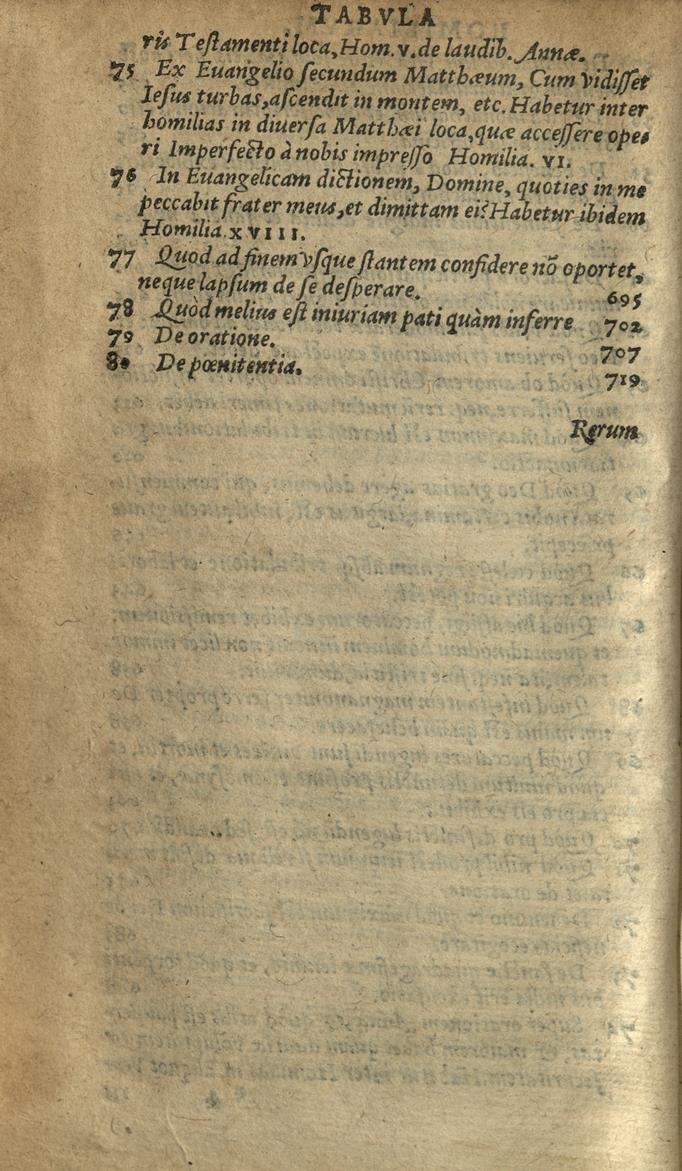 TABVLA
ris Testamenti loca, Hom. v. de laudib. Annæ.
75 Ex Euangelio secundum Matthæum, Cum vidisset
Iesus turbas, ascendit in montem, etc. Habetur inter
homilias in diuersa Matthæi loca, quæ accessere ope-
ri Imperfecto à nobis impresso Homilia. VI.
76 In Euangelicam dictionem, Domine, quoties in me
peccabit frater meus, et dimittam ei? Habetur ibidem
Homilia. XVIII.
77 Quod ad finem vsque stantem confidere nõ oportet,
neque lapsum de se desperare. 695
78 Quòd melius est iniuriam pati quàm inferre 702
79 De oratione. 707
80 De pœnitentia. 719
Rerum